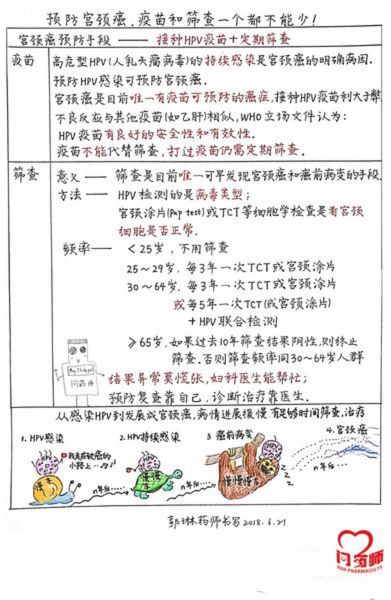 预防宫颈癌,疫苗和筛查一个都不能少!
宫颈癌预防手段 —— 接种HPV疫苗+定期筛查
疫苗
高危型HPV(人乳头瘤病毒)的持续感染是宫颈癌的明确病因。
预防HPV感染可预防宫颈癌。
宫颈癌是目前唯一有疫苗可预防的癌症,接种HPV疫苗利大于弊
不良反应与其他疫苗(如乙肝)相似,WHO立场文件认为:
HPV疫苗有良好的安全性和有效性。
疫苗不能代替筛查,打过疫苗仍需定期筛查。
筛查
意义 — 筛查是目前唯一可早发现宫颈癌和癌前病变的手段.
方法 — HPV检测的是病毒类型;
宫颈涂片(Pap test)或TCT等细胞学检查是看宫颈
细胞是否正常.
频率 — <25岁,不用筛查
25~29岁,每3年一次TCT或宫颈涂片
30~64岁,每3年一次TCT或宫颈涂片
或每5年一次TCT(或宫颈涂片)
+HPV联合检测
≥65岁,如果过去10年筛查结果阴性,则终止
筛查.否则筛查频率同30~64岁人群
问药师
结果异常莫慌张,妇科医生能帮忙;
预防复查靠自己,诊断治疗靠医生.
从感染HPV到发展成宫颈癌,病情进展缓慢 有足够时间筛查,治疗
1. HPV感染
2. HPV持续感染
3 癌前病变
4. 宫颈癌
我走在致癌的
小路上…
n年后…
n年后…
慢慢慢
n年后…
郭琳药师书写2018.6.21
问药师
OUR PHARMACISTS